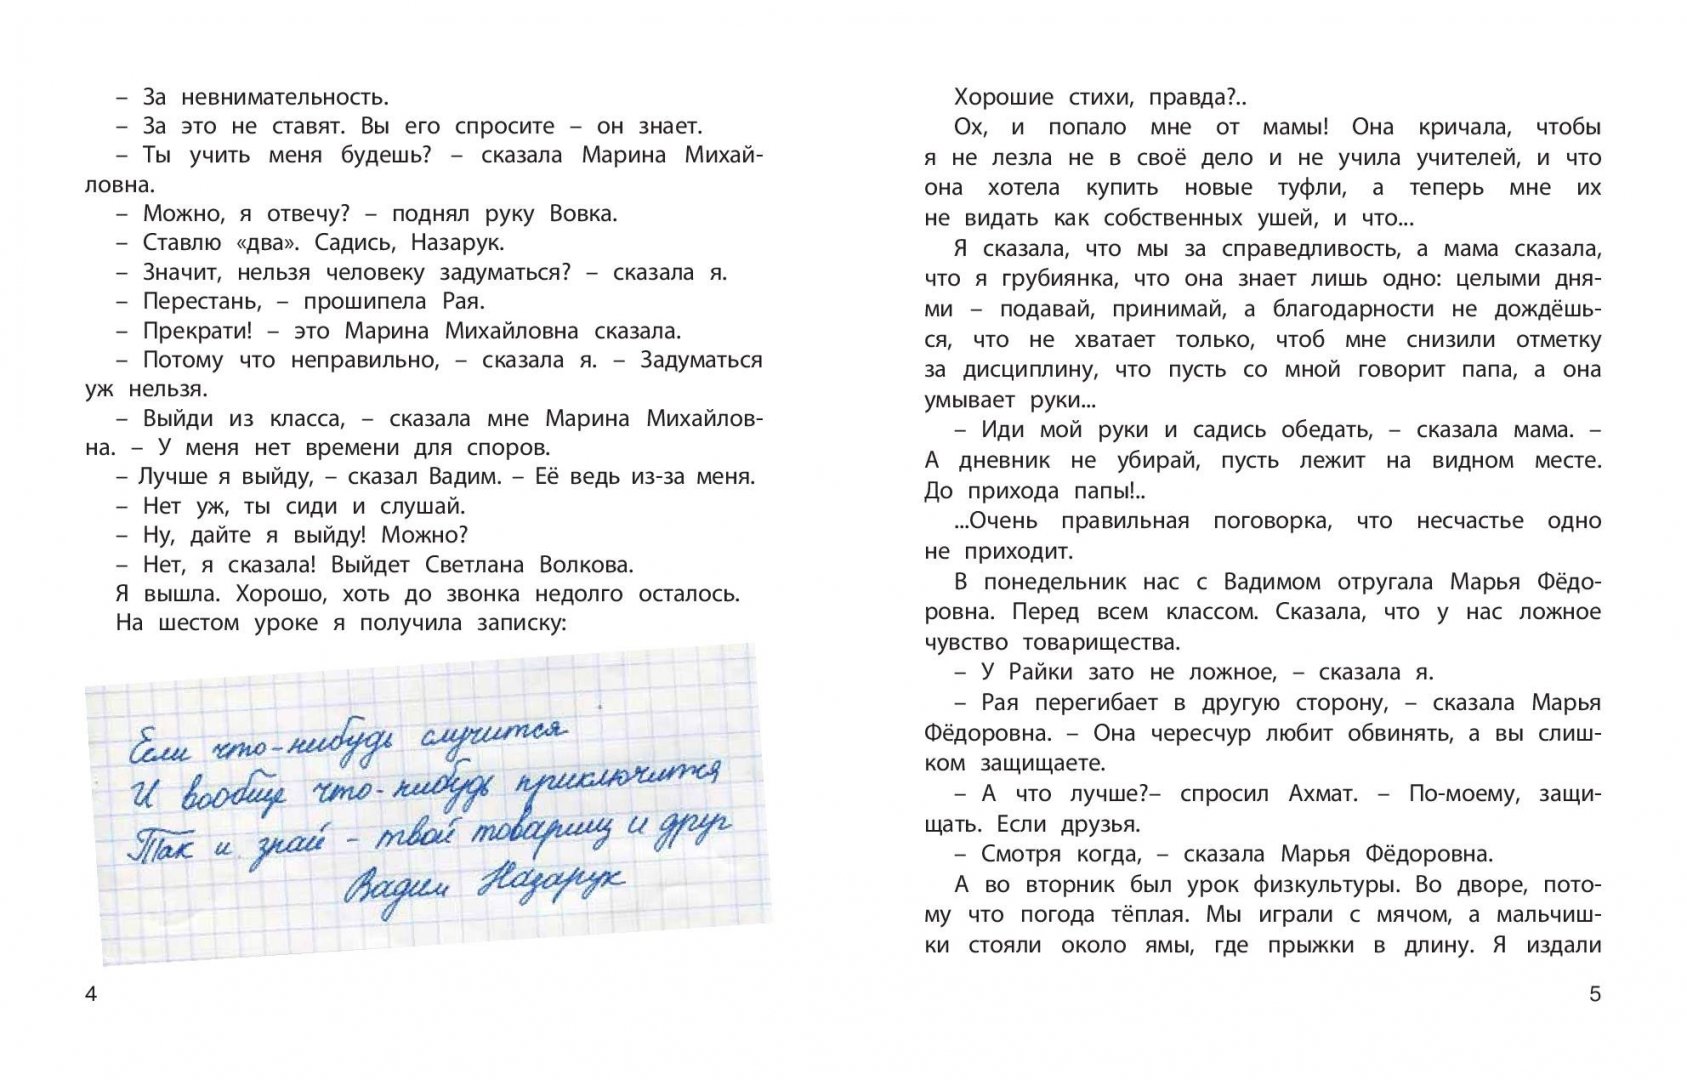 – За невнимательность.
– За это не ставят. Вы его спросите – он знает.
– Ты учить меня будешь? – сказала Марина Михай-
ловна.
– Можно, я отвечу? – поднял руку Вовка.
– Ставлю «два». Садись, Назарук.
– Значит, нельзя человеку задуматься? – сказала я.
– Перестань, – прошипела Рая.
– Прекрати! – это Марина Михайловна сказала.
– Потому что неправильно, – сказала я. – Задуматься
уж нельзя.
– Выйди из класса, – сказала мне Марина Михайлов-
на. – У меня нет времени для споров.
– Лучше я выйду, – сказал Вадим. – Её ведь из-за меня.
– Нет уж, ты сиди и слушай.
– Ну, дайте я выйду! Можно?
– Нет, я сказала! Выйдет Светлана Волкова.
Я вышла. Хорошо, хоть до звонка недолго осталось.
На шестом уроке я получила записку:
Если что-нибудь случится
И вообще что-нибудь приключится
Так и знай – твой товарищ и друг
Вадим Назарук
4
Хорошие стихи, правда?..
Ох, и попало мне от мамы! Она кричала, чтобы
я не лезла не в своё дело и не учила учителей, и что
она хотела купить новые туфли, а теперь мне их
не видать как собственных ушей, и что...
Я сказала, что мы за справедливость, а мама сказала,
что я грубиянка, что она знает лишь одно: целыми дня-
ми – подавай, принимай, а благодарности не дождёшь-
ся, что не хватает только, чтоб мне снизили отметку
за дисциплину, что пусть со мной говорит папа, а она
умывает руки...
– Иди мой руки и садись обедать, – сказала мама. –
А дневник не убирай, пусть лежит на видном месте.
До прихода папы!..
...Очень правильная поговорка, что несчастье одно
не приходит.
В понедельник нас с Вадимом отругала Марья Фёдо-
ровна. Перед всем классом. Сказала, что у нас ложное
чувство товарищества.
– У Райки зато не ложное, – сказала я.
– Рая перегибает в другую сторону, – сказала Марья
Фёдоровна. – Она чересчур любит обвинять, а вы слиш-
ком защищаете.
– А что лучше?– спросил Ахмат. – По-моему, защи-
щать. Если друзья.
– Смотря когда, – сказала Марья Фёдоровна.
А во вторник был урок физкультуры. Во дворе, пото-
му что погода тёплая. Мы играли с мячом, а мальчиш-
ки стояли около ямы, где прыжки в длину. Я издали
5